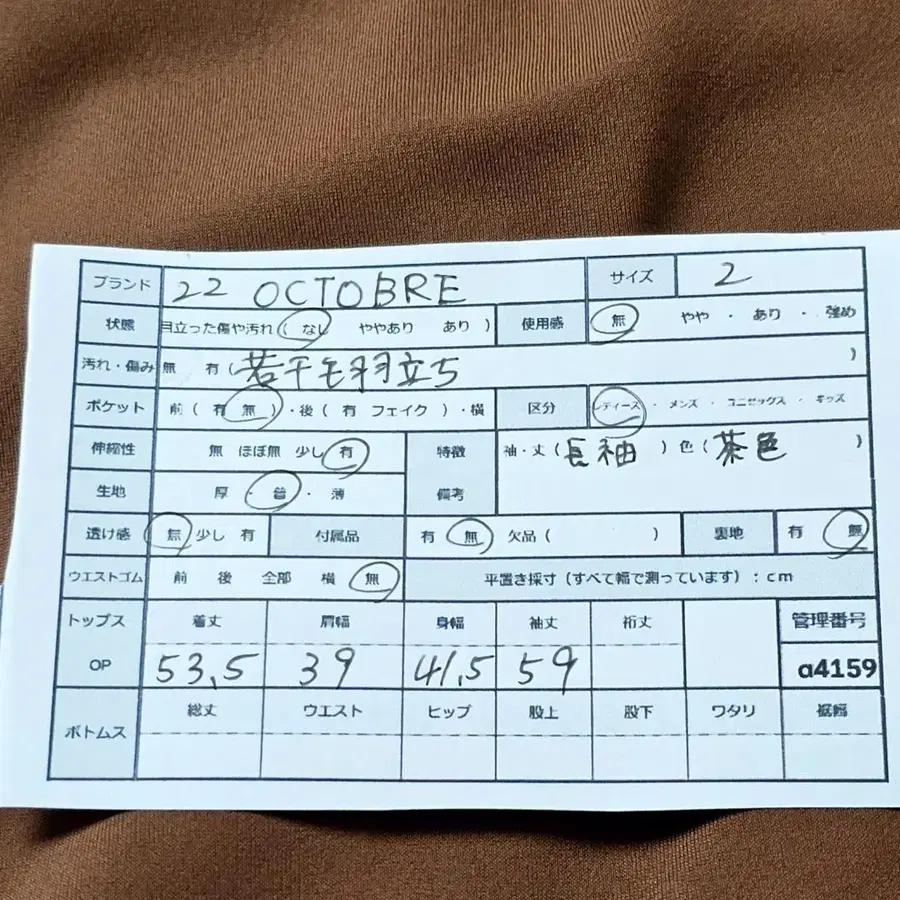 ブランド 22 OCTOBRE サイズ 2
状態 目立った傷や汚れ ( なし ややあり あり ) 使用感 無 やや ・ あり ・ 強め
汚れ・傷み 無 有 ( 若干毛羽立ち )
ポケット 前 ( 有 無 ) ・ 後 ( 有 フェイク ) ・ 横 区分 レディース ・ メンズ ・ ユニセックス ・ キッズ
伸縮性 無 ほぼ無 少し 有 特徴 袖・丈 ( 長袖 ) 色 ( 茶色 )
生地 厚 ・ 普 ・ 薄 備考
透け感 無 少し 有 付属品 有 無 欠品 ( ) 裏地 有 無
ウエストゴム 前 後 全部 横 無 平置き採寸 (すべて幅で測っています) : cm
トップス 着丈 肩幅 身幅 袖丈 裄丈 管理番号
OP 53.5 39 41.5 59 a4159
ボトムス 総丈 ウエスト ヒップ 股上 股下 ワタリ 裾幅